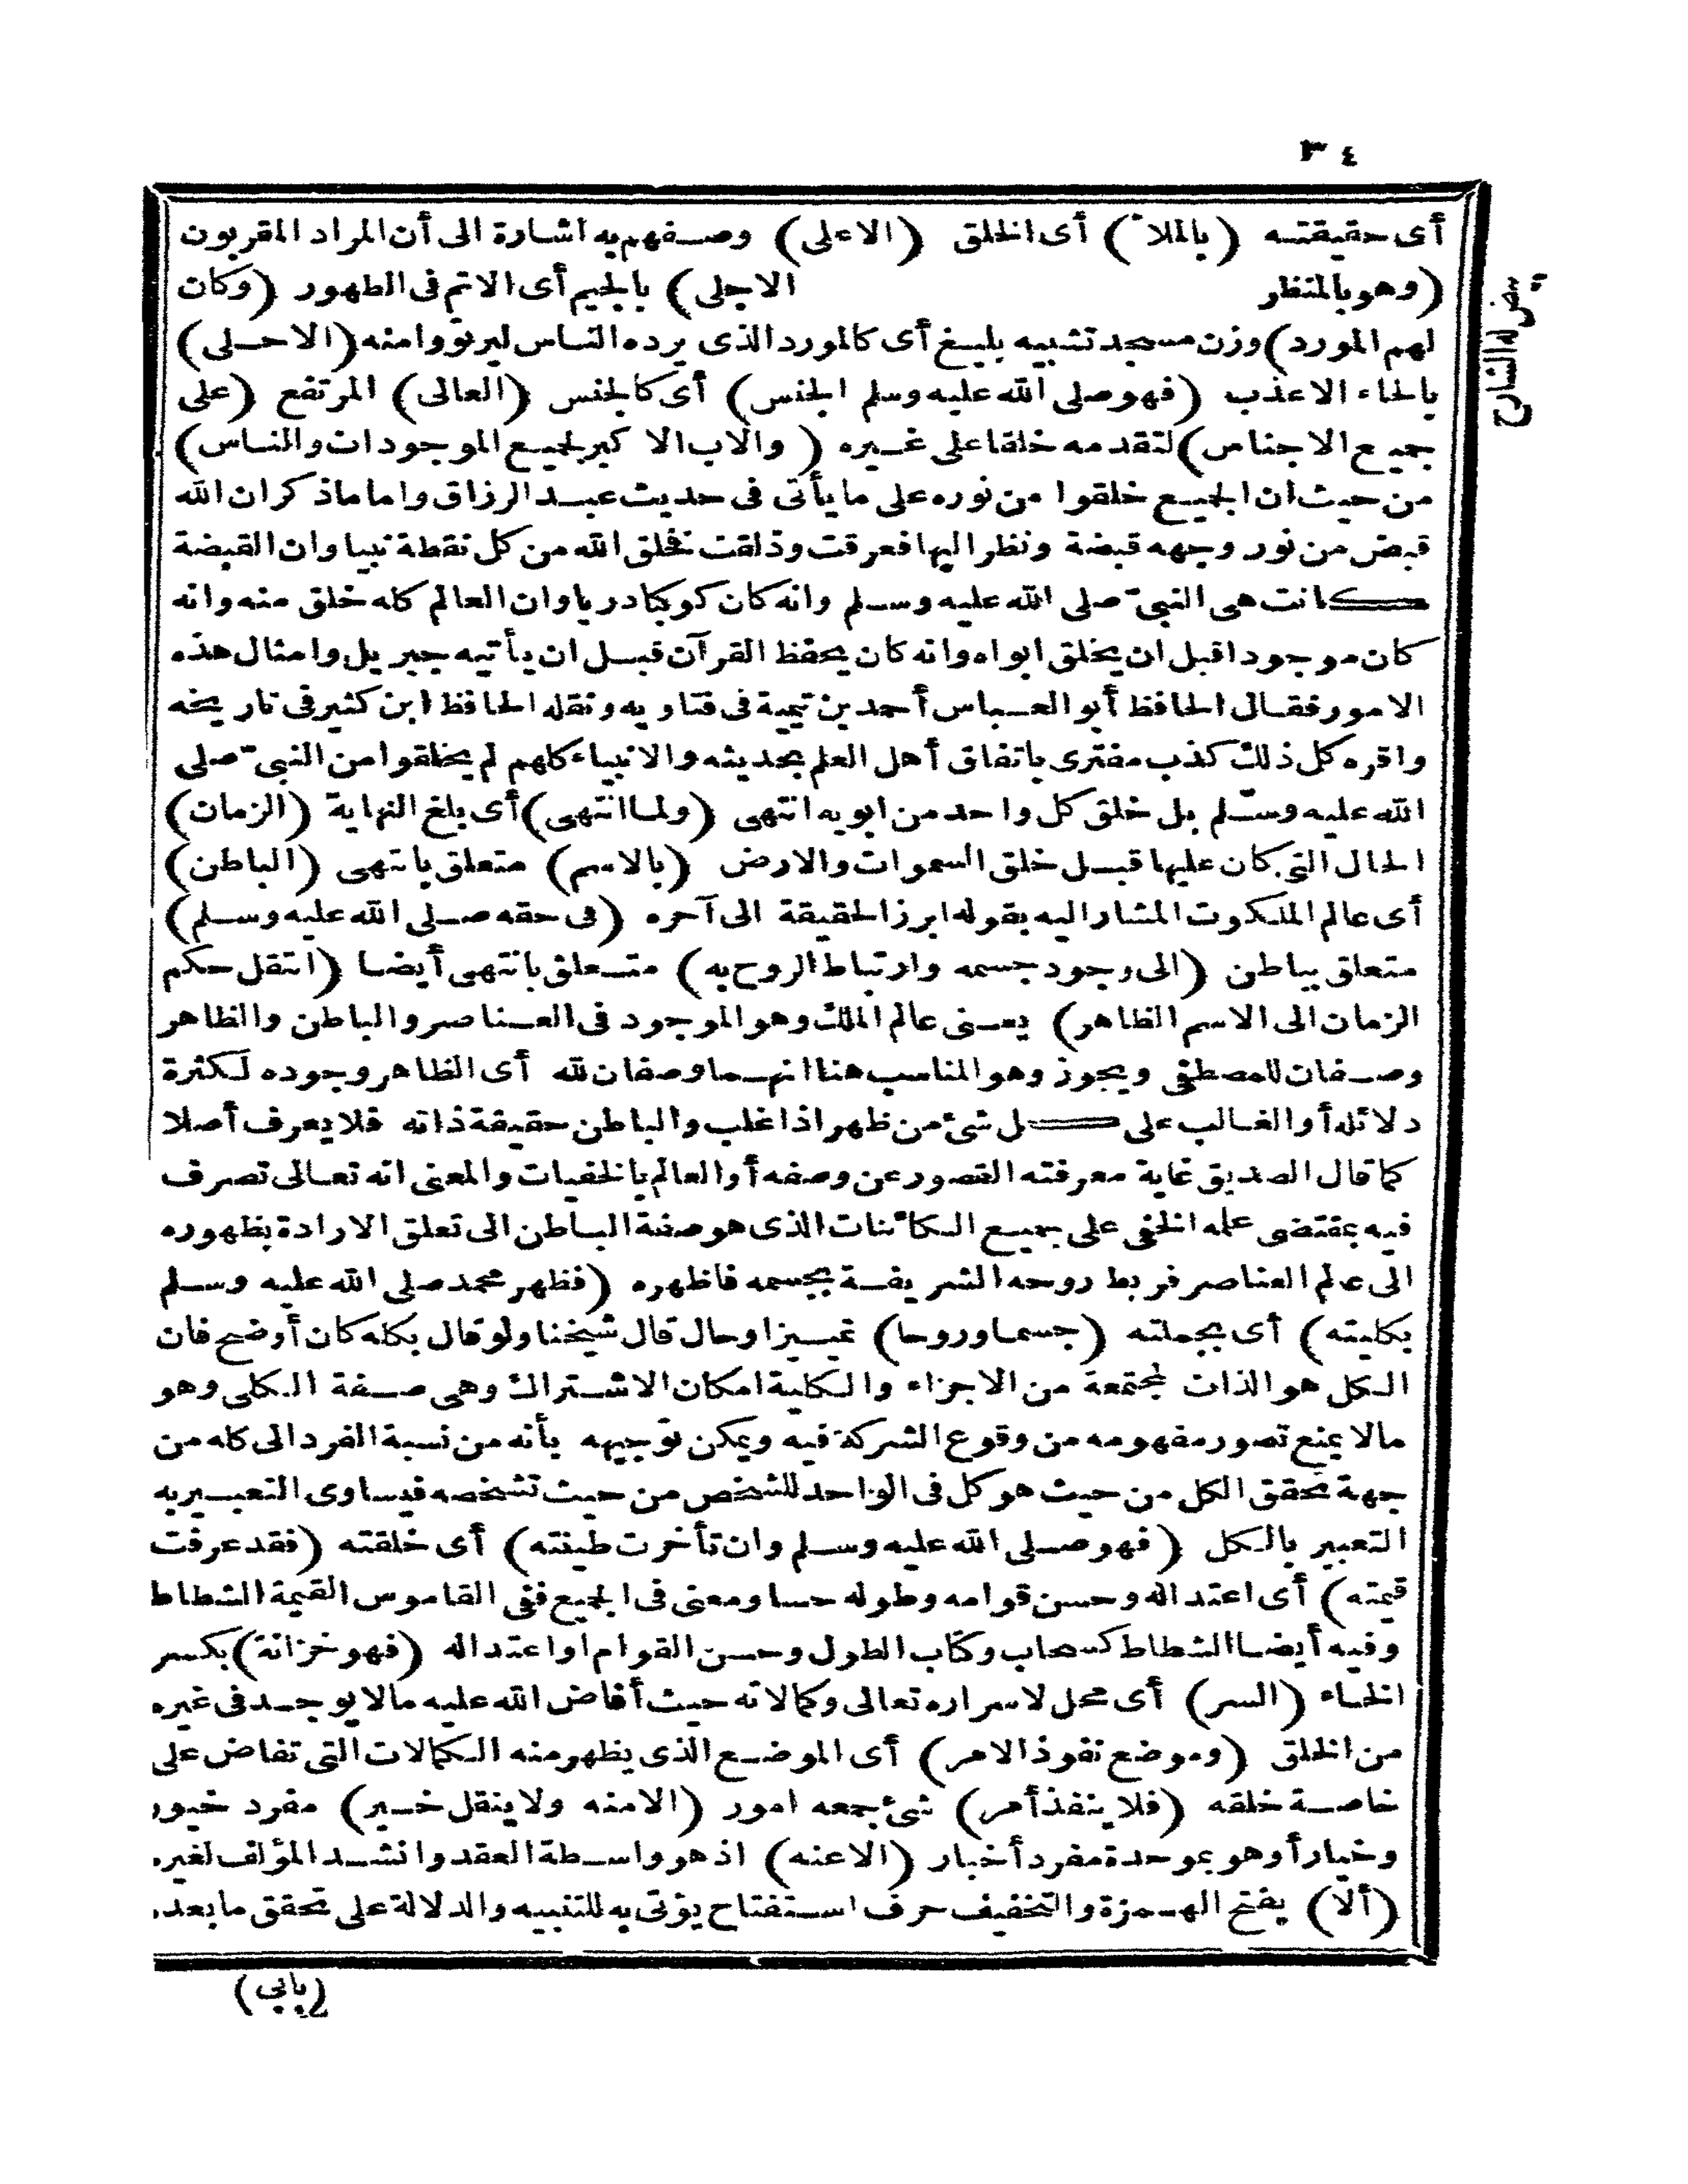 ٣٤
أى حقيقته (بالملأ) أى الخلق (الاعلى) وصفهم به اشارة الى أن المراد المقربون
(وهو بالمنظر الاجلى) بالجيم أى الاتم فى الظهور (وكان
بيض له الشارح
لهم المورد) وزن مسجد تشبيه بليغ أى كالمورد الذى يرده الناس ليرتووا منه (الاحلى)
بالحاء الاعذب (فهو صلى الله عليه وسلم الجنس) أى كالجنس (العالى) المرتفع (على
جميع الاجناس) لتقدمه خلقا على غيره (والاب الاكبر لجميع الموجودات والناس)
من حيث ان الجميع خلقوا من نوره على ما يأتى فى حديث عبد الرزاق واما ماذكر ان الله
قبض من نور وجهه قبضة ونظر اليها فعرقت وذلقت نخلق الله من كل نقطة نبيا وان القبضة
كانت هى النبى صلى الله عليه وسلم وانه كان كوكبا دريا وان العالم كله خلق منه وانه
كان موجودا قبل ان يخلق ابواه وانه كان يحفظ القرآن قبل ان يأتيه جبريل وامثال هذه
الامور فقال الحافظ أبو العباس أحمد بن تيمية فى فتاويه ونقله الحافظ ابن كثير فى تاريخه
واقره كل ذلك كذب مفترى باتفاق أهل العلم بحديثه والانبياء كلهم لم يخلقوا من النبى صلى
الله عليه وسلم بل خلق كل واحد من ابويه انتهى (ولما انتهى) أى بلغ النهاية (الزمان)
الحال التى كان عليها قبل خلق السموات والارض (بالاسم) متعلق بانتهى (الباطن)
أى عالم الملكوت المشار اليه بقوله ابرز الحقيقة الى آخره (فى حقه صلى الله عليه وسلم)
متعلق بباطن (الى وجود جسمه وارتباط الروح به) متعلق بانتهى أيضا (انتقل حكم
الزمان الى الاسم الظاهر) يعنى عالم الملك وهو الموجود فى العناصر والباطن والظاهر
وصفان للمصطفى ويجوز وهو المناسب هنا انهما وصفان لله أى الظاهر وجوده لكثرة
دلائله أو الغالب على كل شئ من ظهر اذا غلب والباطن حقيقة ذاته فلا يعرف أصلا
كما قال الصديق غاية معرفته القصور عن وصفه أو العالم بالخفيات والمعنى انه تعالى تصرف
فيه بمقتضى علمه الخفى على جميع الكائنات الذى هو صفة الباطن الى تعلق الارادة بظهوره
الى عالم العناصر فربط روحه الشريفة بجسمه فاظهره (فظهر محمد صلى الله عليه وسلم
بكليته) أى بجملته (جسما وروحا) تمييز او حال قال شيخنا ولو قال بكله كان أوضح فان
الكل هو الذات المجتمعة من الاجزاء والكلية امكان الاشتراك وهى صفة الكلى وهو
مالا يمنع تصور مفهومه من وقوع الشركة فيه ويمكن توجيهه بأنه من نسبة الفرد الى كله من
جهة تحقق الكل من حيث هو كل فى الواحد للشخص من حيث تشخصه فيساوى التعبير به
التعبير بالكل (فهو صلى الله عليه وسلم وان تأخرت طينته) أى خلقته (فقد عرفت
قيمته) أى اعتداله وحسن قوامه وطوله حسا ومعنى فى الجميع ففى القاموس القيمة الشطاط
وفيه أيضا الشطاط كسحاب وكتاب الطول وحسن القوام او اعتداله (فهو خزانة) بكسر
الخاء (السر) أى محل لاسراره تعالى وكمالاته حيث أفاض الله عليه مالا يوجد فى غيره
من الخلق (وموضع نفوذ الامر) أى الموضع الذى يظهر منه الكمالات التى تفاض على
خاصة خلقه (فلا ينفذ أمر) شئ جمعه امور (الامنه ولا ينقل خير) مفرد خيور
وخيار أو هو بموحدة مفرد أخبار (الاعنه) اذ هو واسطة العقد وانشد المؤلف لغيره
(ألا) بفتح الهمزة والتخفيف حرف استفتاح يؤتى به للتنبيه والدلالة على تحقق ما بعده
(بابى)